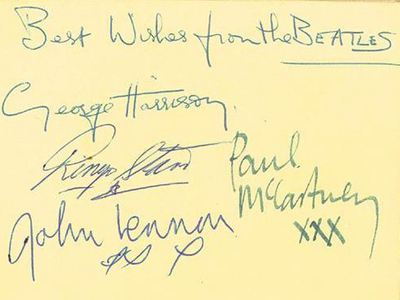 Best Wishes from the BEATLES
George Harrison.
Ringo Starr
Paul
McCartney
XXX
John Lennon
XX X